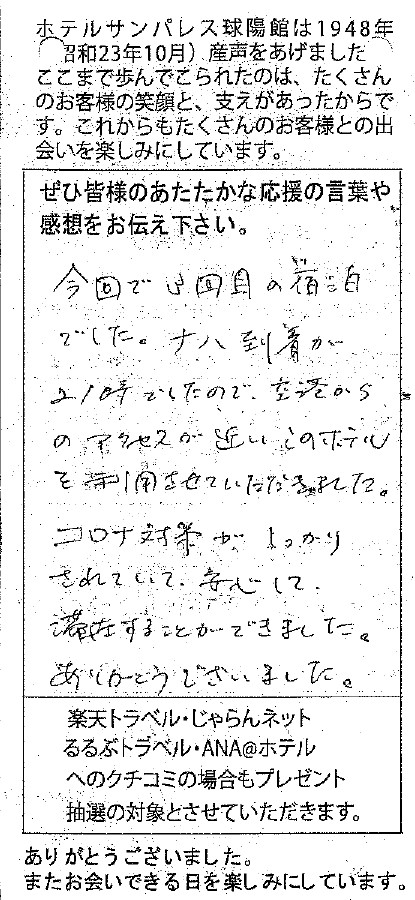 ホテルサンパレス球陽館は1948年
(昭和23年10月）産声をあげました
ここまで歩んでこられたのは、たくさん
のお客様の笑顔と、支えがあったからで
す。これからもたくさんのお客様との出
会いを楽しみにしています。
ぜひ皆様のあたたかな応援の言葉や
感想をお伝え下さい。
今回で 回目の宿泊
でした。ナハ到着が
21時でしたので、空港から
のアクセスが近いこのホテル
を利用させていただきました。
コロナ対策が、しっかり
されていて、安心して、
滞在することができました。
ありがとうございました。
楽天トラベル・じゃらんネット
るるぶトラベル・ANA@ホテル
へのクチコミの場合もプレゼント
抽選の対象とさせていただきます。
ありがとうございました。
またお会いできる日を楽しみにしています。